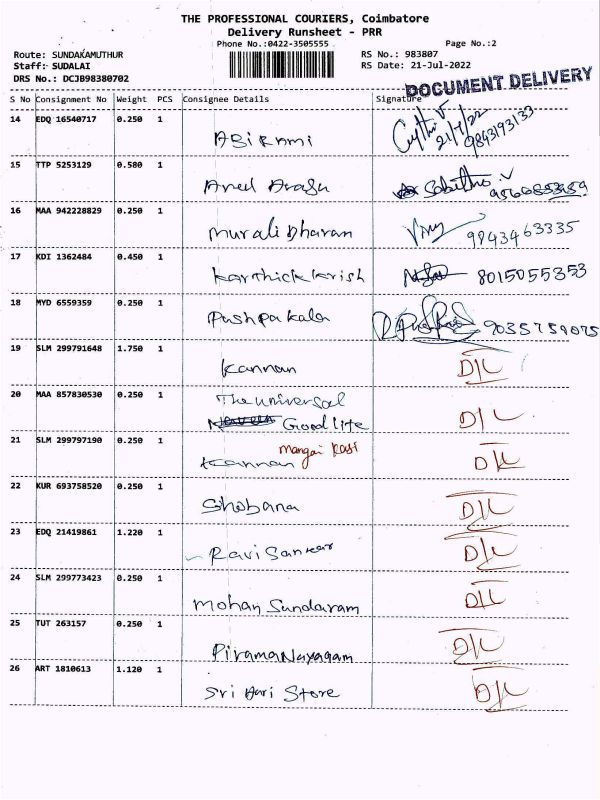 THE PROFESSIONAL COURIERS, Coimbatore
Delivery Runsheet - PRR
Phone No.:0422-3505555
Page No.:2
Route: SUNDAKAMUTHUR
RS No.: 983807
Staff: SUDALAI
RS Date: 21-Jul-2022
DRS No.: DCJB98380702
DOCUMENT DELIVERY
S No Consignment No Weight PCS Consignee Details Signature
14 EDQ 16540717 0.250 1 Abirami 21/7/22 9843193133
15 TTP 5253129 0.580 1 9566685359
16 MAA 942228829 0.250 1 Muralidharan 9843463335
17 KDI 1362484 0.450 1 Karthick Krish 8015055353
18 MYD 6559359 0.250 1 Pushpakala 9035759075
19 SLM 299791648 1.750 1 Kannan D/L
20 MAA 857830530 0.250 1 The universal
Good Lite D/L
21 SLM 299797190 0.250 1 Kannan Mangai D/L
22 KUR 693758520 0.250 1 Shobana D/L
23 EDQ 21419861 1.220 1 Ravi Sankar D/L
24 SLM 299773423 0.250 1 Mohan Sundaram D/L
25 TUT 263157 0.250 1 Pirama Nayagam D/L
26 ART 1810613 1.120 1 Sri Hari Store D/L